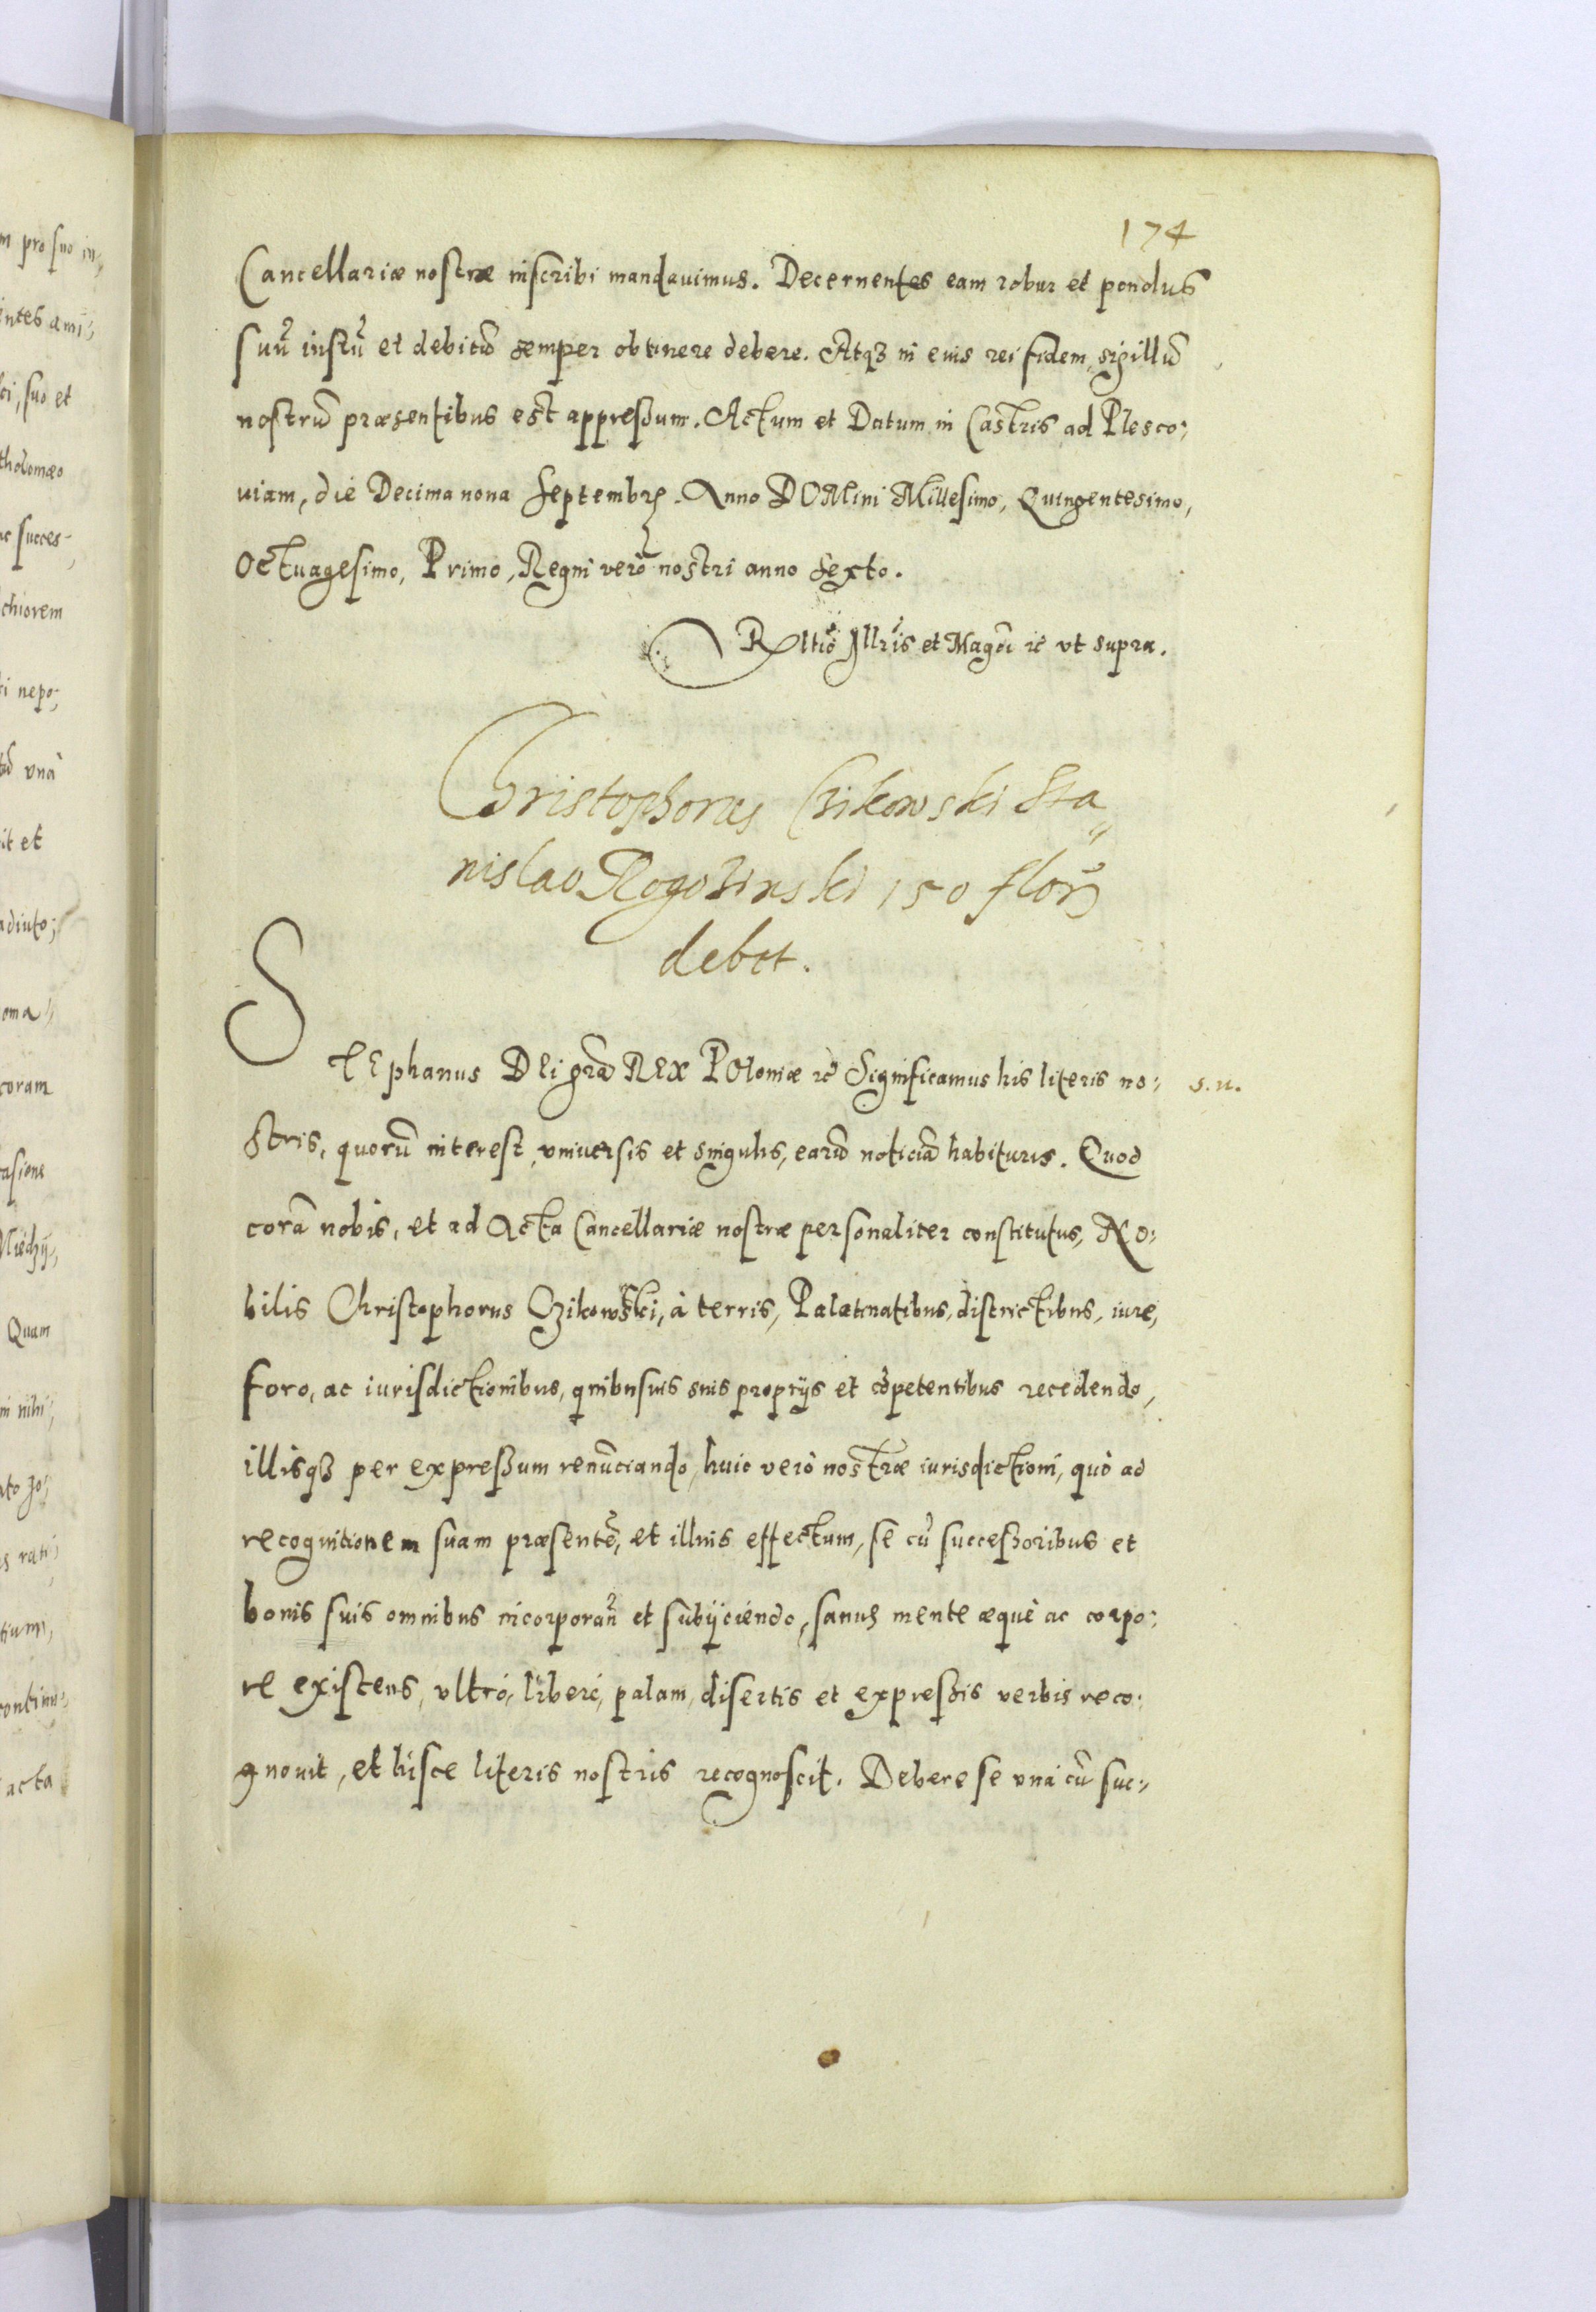 174
Cancellariæ nostræ inscribi mandauimus. Decernentes eam robur et pondus
suũ iustũ et debitũ semper obtinere debere. Atqꝫ in eius rei fidem, sigillũ
nostrũ præsentibus est appreßum. Actum et Datum in Castris ad Plesco:
uiam, die Decima nona Septembrꝭ. Anno DOMini Millesimo, Quingentesimo,
Octuagesimo, Primo, Regni verò nostri anno Sexto.
Rltiõ Jllr̃is et Magcĩ ꝛc̃ vt supra.
Christophorus Czikowski Sta„
nislao Rogozinski 150 florꝭ
debet.
STEphanus DEi gr̃a REX POloniæ ꝛc̃ Significamus his literis no:
s. n.
stris, quorũ interest, vniuersis et singulis, earũ noticiã habituris. Quod
corã nobis, et ad Acta Cancellariæ nostræ personaliter constitutus, No:
bilis Christophorus Czikowski, à terris, Palatinatibus, districtibus, iure,
foro, ac iurisdictionibus, quibusuis suis proprijs et cõpetentibus recedendo,
illisqꝫ per expreßum renũciando, huic verò nostræ iurisdictioni, quò ad
recognitionem suam præsentẽ, et illius effectum, se cũ succeßoribus et
bonis suis omnibus incorporañ et subijciendo, sanus mente æquè ac corpo:
re existens, vltró, liberé, palam, disertis et expreßis verbis reco:
gnouit, et hisce literis nostris recognoscit. Debere se vná cũ suc: